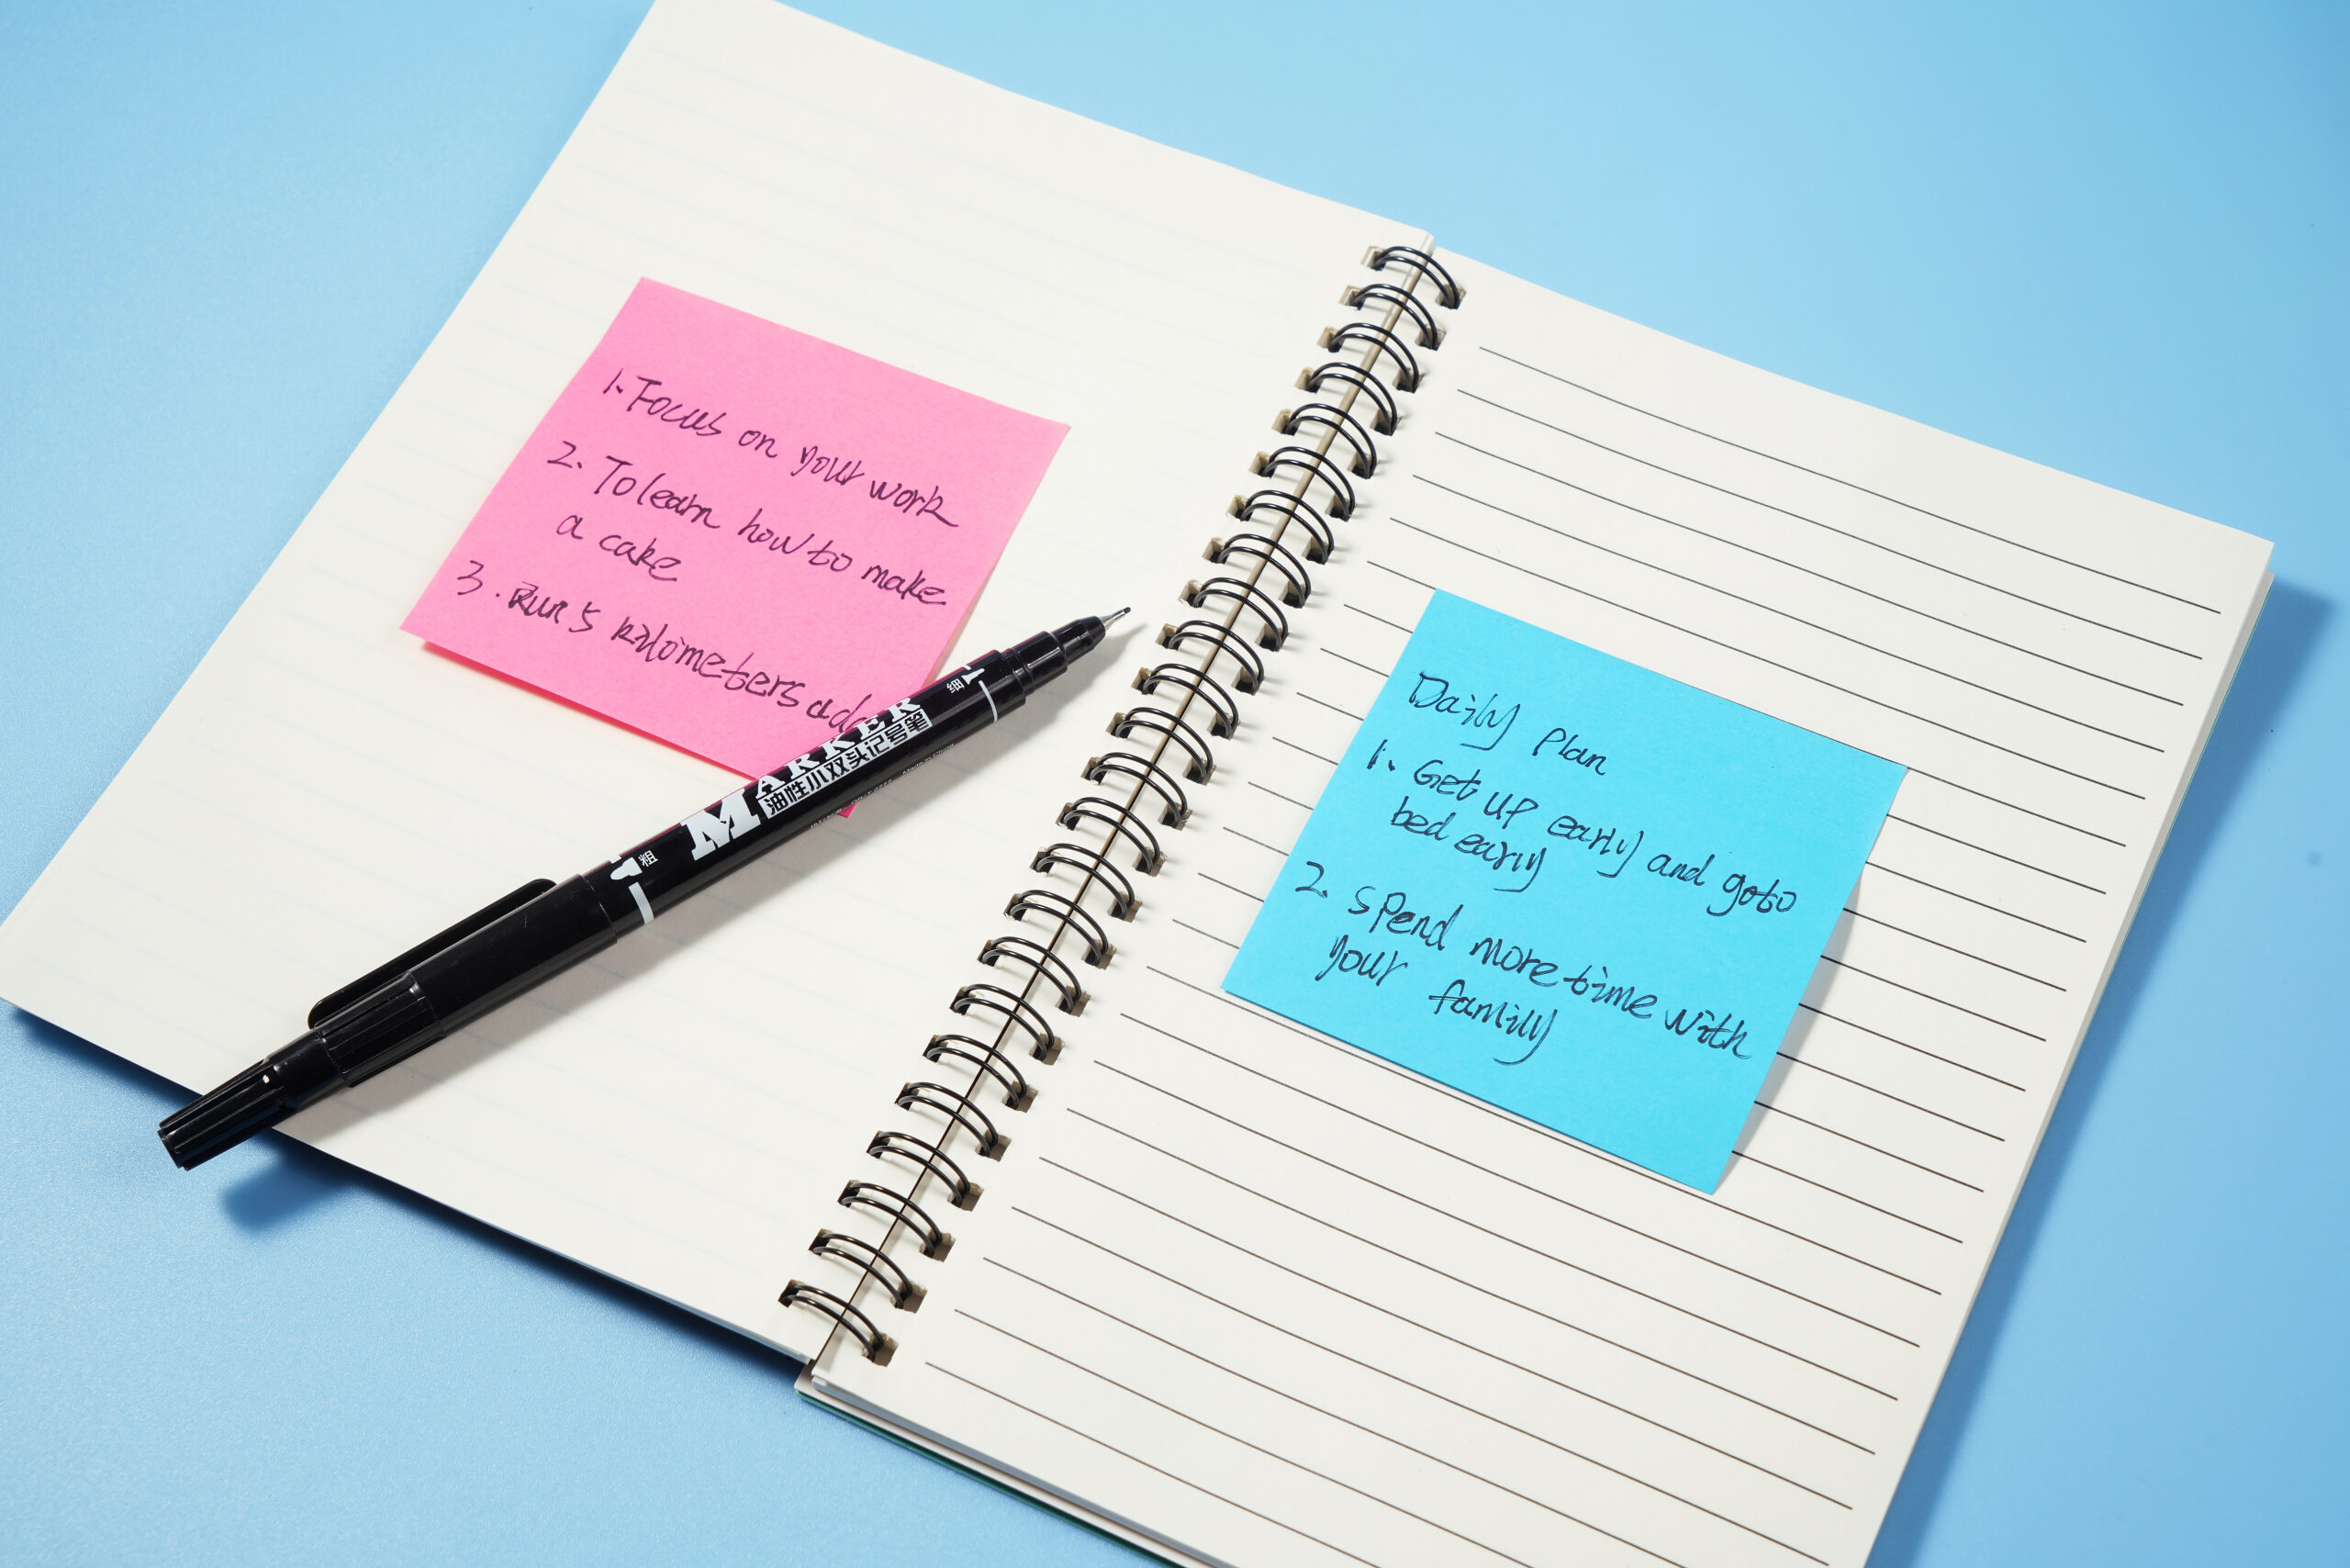 1. Focus on your work
2. To learn how to make
a cake
3. Run 5 kilometers a
MARKER
油性小双头记号笔
细
粗
Daily plan
1. Get up early and go to
bed early
2. spend more time with
your family